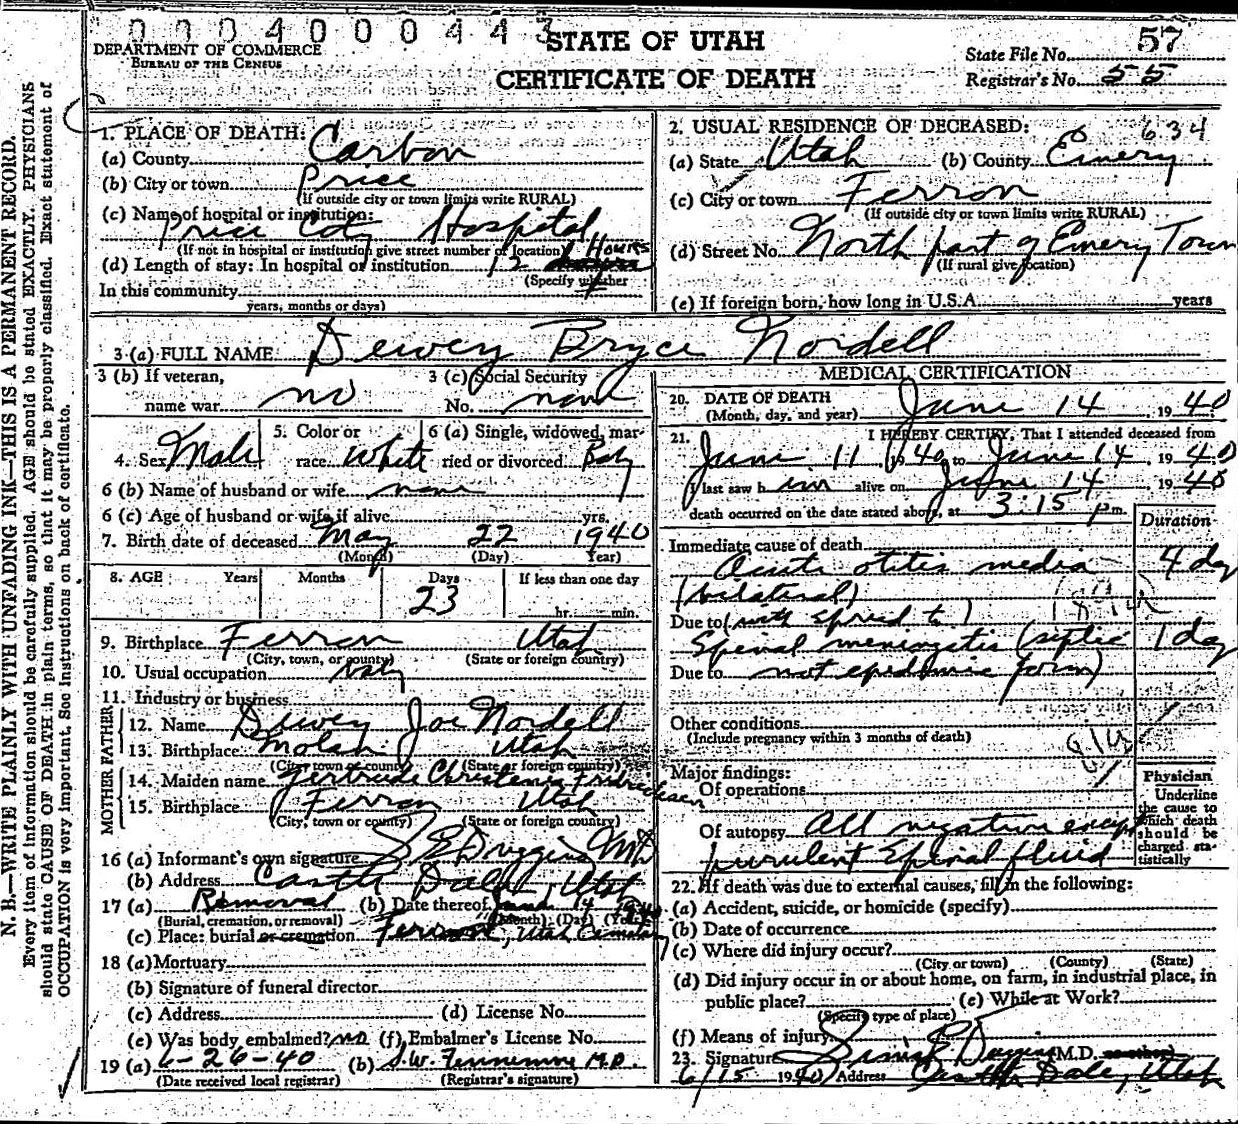 0 0 0 4 0 0 0 4 4 3
STATE OF UTAH
CERTIFICATE OF DEATH
DEPARTMENT OF COMMERCE
BUREAU OF THE CENSUS
State File No. 57
Registrar's No. 55
N. B.—WRITE PLAINLY WITH UNFADING INK—THIS IS A PERMANENT RECORD.
Every item of information should be carefully supplied. AGE should be stated EXACTLY. PHYSICIANS
should state CAUSE OF DEATH in plain terms, so that it may be properly classified. Exact statement of
OCCUPATION is very important. See instructions on back of certificate.
1. PLACE OF DEATH:
(a) County Carbon
(b) City or town Price
(If outside city or town limits write RURAL)
(c) Name of hospital or institution:
Price City Hospital
(If not in hospital or institution give street number or location)
(d) Length of stay: In hospital or institution 12 Hours
(Specify whether
In this community
years, months or days)
2. USUAL RESIDENCE OF DECEASED: 634
(a) State Utah (b) County Emery
(c) City or town Ferron
(If outside city or town limits write RURAL)
(d) Street No. North part of Emery Town
(If rural give location)
(e) If foreign born, how long in U.S.A. years
3 (a) FULL NAME Dewey Bryce Nordell
3 (b) If veteran, name war no
3 (c) Social Security No. none
4. Sex Male
5. Color or race White
6 (a) Single, widowed, married or divorced Baby
6 (b) Name of husband or wife none
6 (c) Age of husband or wife if alive yrs.
7. Birth date of deceased May 22 1940
(Month) (Day) Year)
8. AGE Years Months Days If less than one day
23 hr. min.
9. Birthplace Ferron Utah
(City, town, or county) (State or foreign country)
10. Usual occupation baby
11. Industry or business
FATHER
12. Name Dewey Joe Nordell
13. Birthplace Molen Utah
(City town or county) (State or foreign country)
MOTHER
14. Maiden name Gertrude Christena Fredricksen
15. Birthplace Ferron Utah
(City, town or county) (State or foreign country)
16 (a) Informant's own signature
(b) Address Castle Dale, Utah
17 (a) Removal (b) Date thereof June 14 1940
(Burial, cremation, or removal) (Month) (Day) (Year)
(c) Place: burial or cremation Ferron, Utah Cemetery
18 (a) Mortuary
(b) Signature of funeral director
(c) Address (d) License No.
(e) Was body embalmed? no (f) Embalmer's License No.
19 (a) 6-26-40 (b) M.D.
(Date received local registrar) (Registrar's signature)
MEDICAL CERTIFICATION
20. DATE OF DEATH
(Month, day, and year) June 14 1940
21. I HEREBY CERTIFY, That I attended deceased from
June 11 1940 to June 14 1940
I last saw him alive on June 14 1940
death occurred on the date stated above, at 3:15 pm.
Duration
Immediate cause of death
Acute otitis media 4 day
(bilateral)
Due to (with spread to)
Spinal meningitis (septic 1 day
Due to not epidemic form)
Other conditions
(Include pregnancy within 3 months of death)
Major findings:
Of operations
Of autopsy All negative except
purulent spinal fluid
Physician
Underline
the cause to
which death
should be
charged sta-
tistically
22. If death was due to external causes, fill in the following:
(a) Accident, suicide, or homicide (specify)
(b) Date of occurrence
(c) Where did injury occur?
(City or town) (County) (State)
(d) Did injury occur in or about home, on farm, in industrial place, in
public place? (e) While at Work?
(Specify type of place)
(f) Means of injury
23. Signature M.D. or other)
6/15 1940 Address Castle Dale, Utah